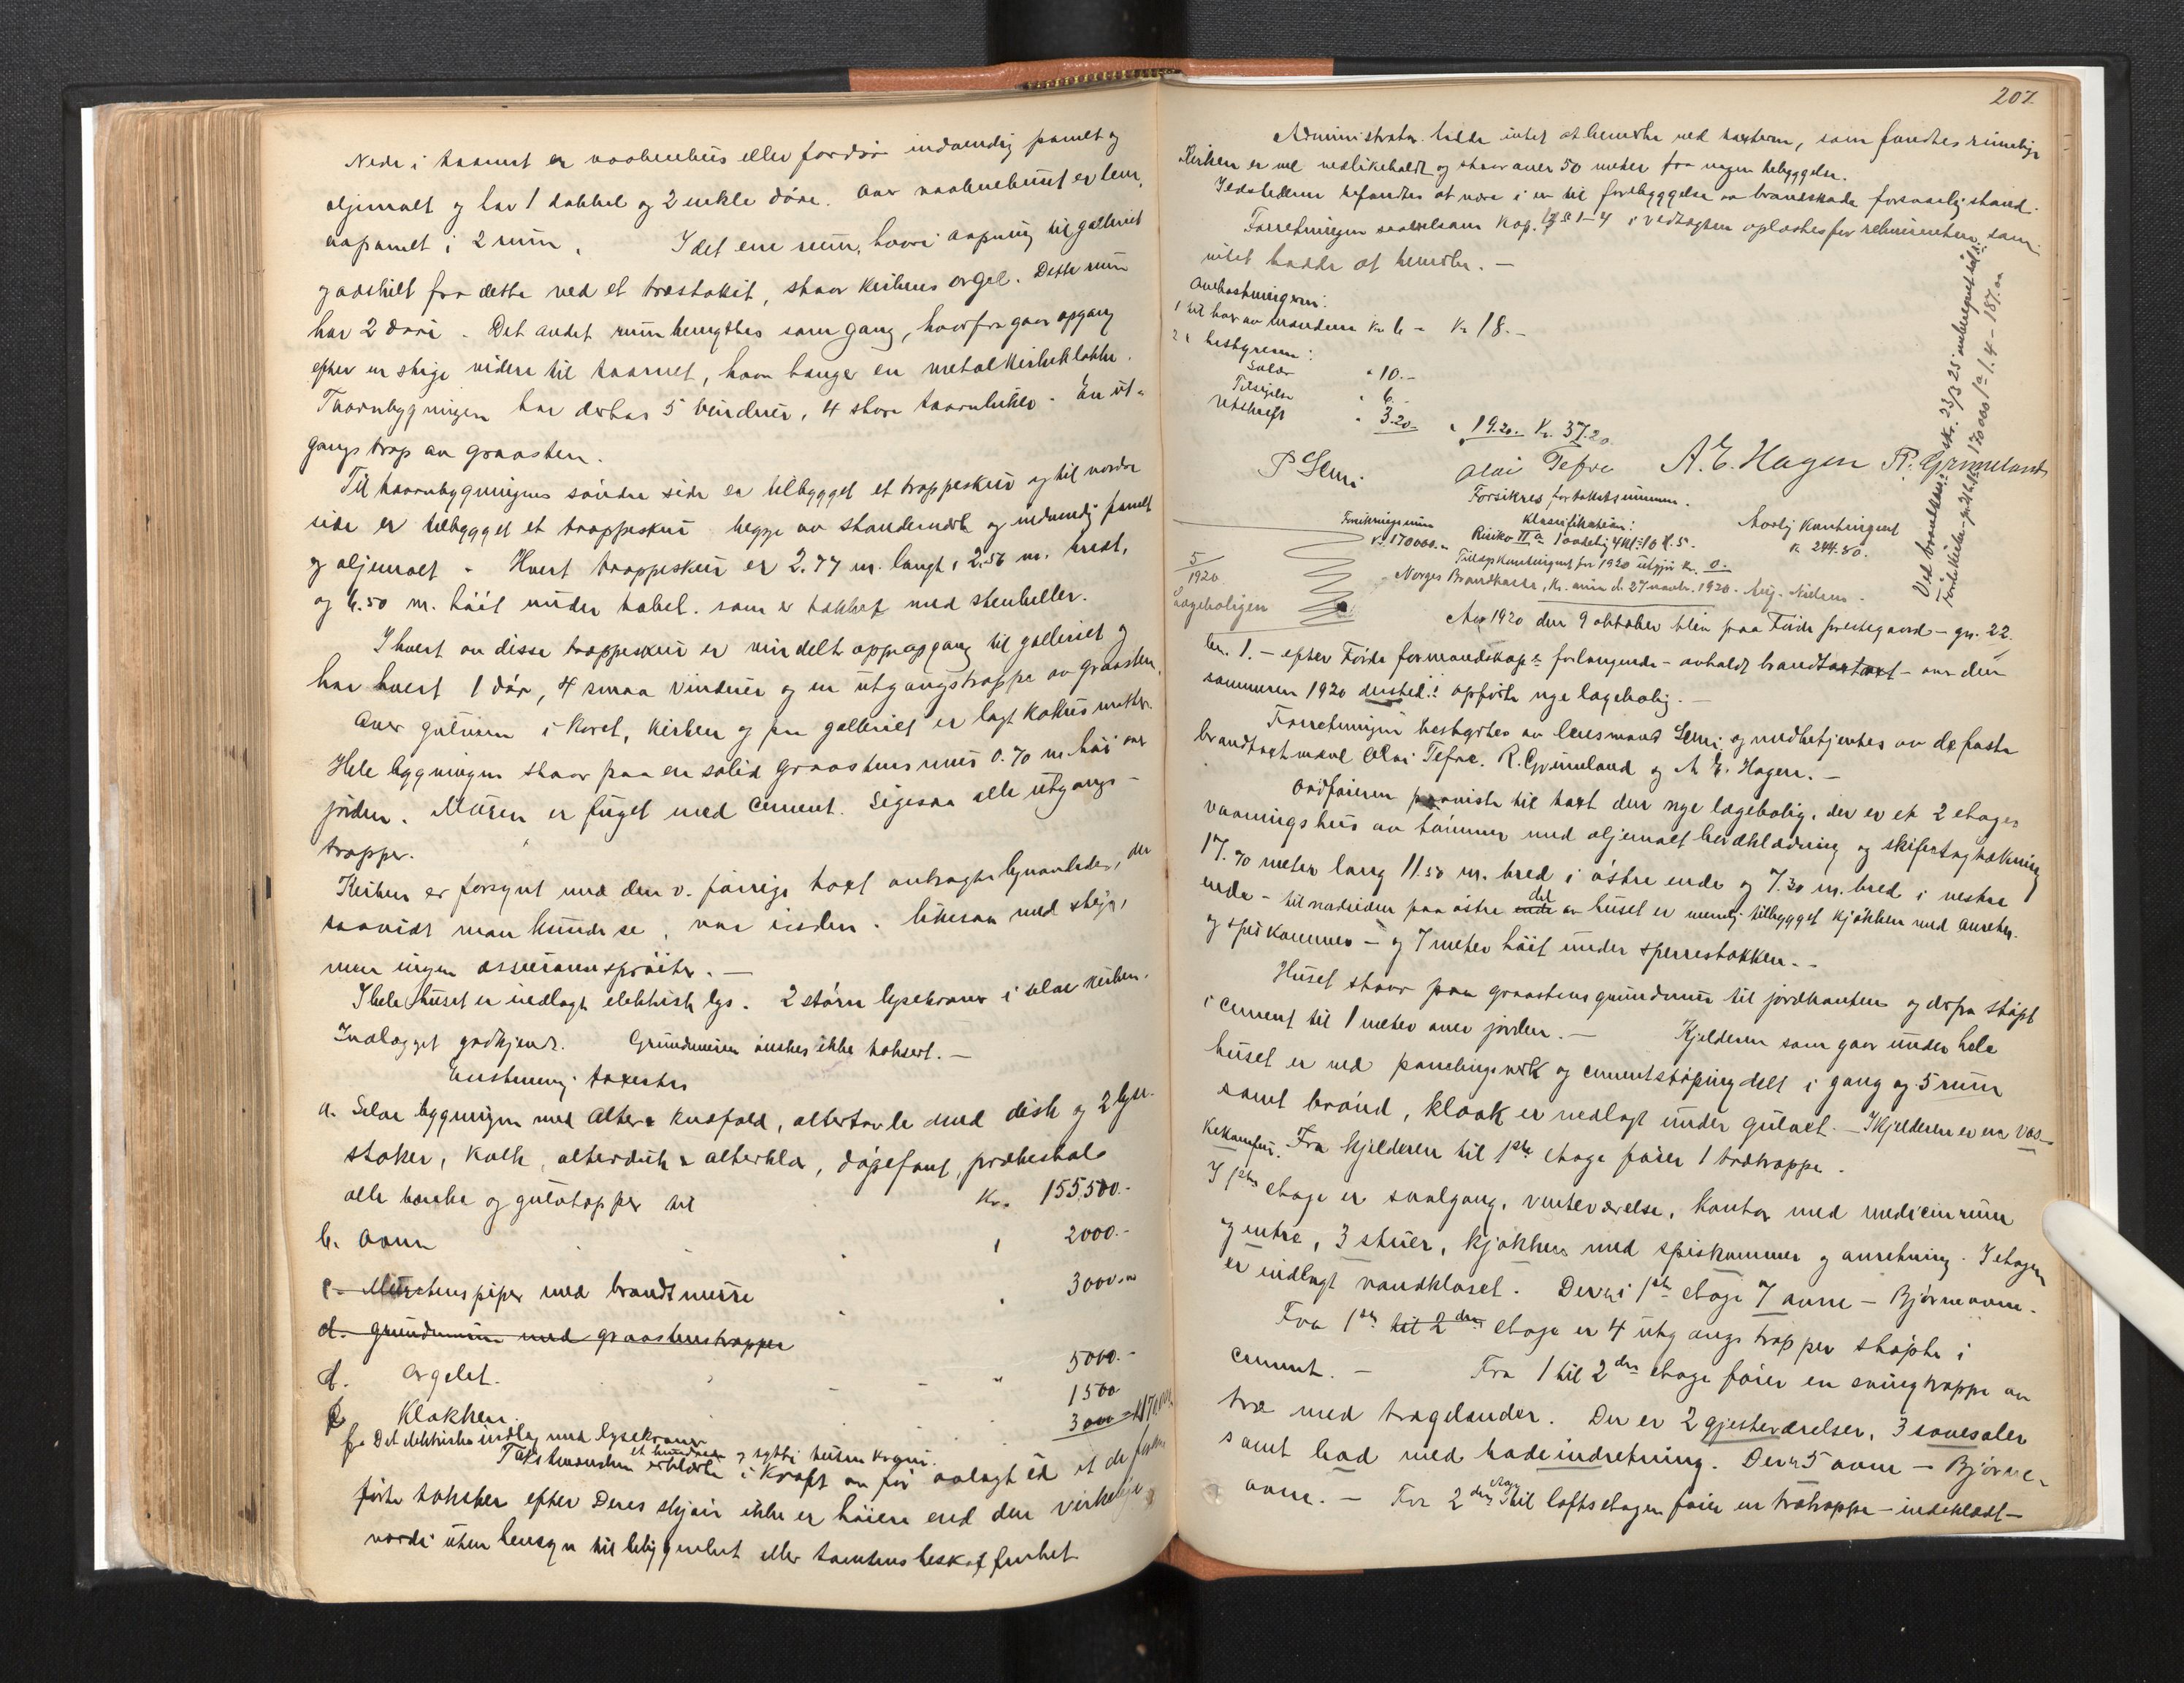 Nede i taarnet er vaabenhus eller fordør indvendig panelt og
oljemalt og har 1 dobbel og 2 enkle døre. Over vaabenhuset er lem,
avpanelt i 2 rum. I det ene rum, hvori aapning til galleriet
og adskilt fra dette ved et træstakit, staar kirkens orgel. Dette rum
har 2 døre. Det andet rum benyttes som gang, hvorfra gaar opgang
efter en stige videre til taarnet, hvor hænger en metalkirkeklokke.
Taarnbygningen har derhos 5 vinduer, 4 store taarnluker. En ut-
gangs trap av graasten.
Til taarnbygningens søndre side er tilbygget et trappeskur og til nordre
side er tilbygget et trappeskur begge av standerverk og indvendig panelt
og oljemalt. Hvert trappeskur er 2.77 m. langt, 2.56 m. bredt,
og 6.50 m. høit under tabel. som er tækket med stenheller.
I hvert av disse trappeskur er vindelt oppgang til galleriet og
har hvert 1 dør, 4 smaa vinduer og en utgangstrappe av graasten.
Over gulvene i koret, kirken og paa galleriet er lagt kokusmatter.
Hele bygningen staar paa en solid graastensmur 0.70 m. høi over
jorden. Muren er fuget med cement. Ligesaa alle utgangs-
trapper.
Kirken er forsynt med den v. forrige taxt anbragte lynavleder, der
saavidt man kunde se, var isoleren. likesaa med stiger,
men ingen assuranesprøiter. —
I hele huset er indlagt elektrisk lys. 2 større lysekroner i selve kirken.
Indlægget godkjendt. Grundmuren ønskes ikke takseret. —
a. Selve bygningen med Alter & knæfald, altertavle med disk og 2 lyse-
staker, kalk, alterduk & alterklæ, døpefont, prækestol
alle bænke og gulvtæpper til Kr. 155,500.-
b. Ovne 2000.-
c. Murstenspiper med brandtmure 3000.00
d. grundmuren med graastenstrapper
d. Orgelet. 5000.-
e. Klokken. 1500
f. Det elektriske indlæg med lysekroner 3000 = 170,000
et hundrede og sytti tusen kroner.
Takstmændene erklærte i kraft av før avlagt ed at de
førte takster efter Deres skjøn ikke er høiere end den virkelige
værdi uten hensyn til beliggenhet eller tomtens beskaffenhet
207.
Administrator hadde intet at bemerke ved taxterne, som fandtes rimelige
Kirken er vel vedlikeholdt og staar over 50 meter fra nogen bebyggelse.
Ildstederne befandtes at være i en til forebyggelse av brandskade forsvarlig stand.
Forretningen saavelsom Kap. 12 § 1-4 i vedtægten oplæstes for rekvirenten som
intet hadde at bemerke. —
Omkostningerne:
1 til hver av mændene Kr 6 - Kr 18.-
2 " bestyreren:
Salær " 10.-
Tilsigelse " 6.
Utskrift " 3.20. " 19.20. Kr. 37.20
P Lemi Olai Tefre A. E. Hagen R. Grimeland
Forsikres for takstsummen.
Forsikringssum Klassifikation: Aarlig Kontingent
Kr. 170000.- Risiko IIa 1 avdeling 4 kl. 10 l. 5. Kr 244.80.
Tillægskontingent for 1920 utgjør kr. 0.-
Norges Brandkasse, Kr.ania d. 27 novbr. 1920. Aug. Nielsen.
Ved brandkas. skr. 23/3 25 omberegnet bl.a.
5/1920
Lægeboligen
Aar 1920 den 9 oktober blev paa Førde prestegaard - gn. 22.
bn. 1. - efter Førde formandskaps forlangende - avholdt brandtaxt - over den
sommeren 1920 dersteds opførte nye lægebolig. —
Forretningen bestyrtes av lensmand Lemi og medbetjentes av de faste
brandtaxtmænd Olai Tefre. R. Grimeland og A. E. Hagen. —
Ordføreren paaviste til taxt den nye lægebolig, der er et 2 etages
vaaningshus av tømmer med oljemalt bordklædning og skifertagtækning
17.70 meter lang 11.50 m. bred i østre ende og 7.30 m. bred i vestre
ende - til nordsiden paa østre del av huset er nemlig tilbygget kjøkken med anretn.
og spiskammer - og 7 meter høit under sperrestokken. -
Huset staar paa graastens grundmur til jordkanten og derfra støpt
i cement til 1 meter over jorden. — Kjelderen som gaar under hele
huset er ved panelingsverk og cementstøping delt i gang og 5 rum
samt brønd, kloak er nedlagt under gulvet. — I kjelderen er en vas-
kekomfur. Fra kjelderen til 1ste etage fører 1 trætrappe.
I 1ste etage er svalgang, venteværelse, kontor med medicinrum
og entre, 3 stuer, kjøkken med spiskammer og anretning. I etagen
er indlagt vandkloset. Der er i 1ste etage 7 ovne - Bjørneovne.
Fra 1ste til 2den etage er 4 utgangs trapper støpte i
cement. — Fra 1 til 2den etage fører en svingtrappe av
træ med trægelænder. Der er 2 gjesteværelser, 3 sovesaler
samt bad med badeindretning. Der er 5 ovne - Bjørne-
ovne. — Fra 2den etage til loftsetagen fører en trætrappe - indeklædt —